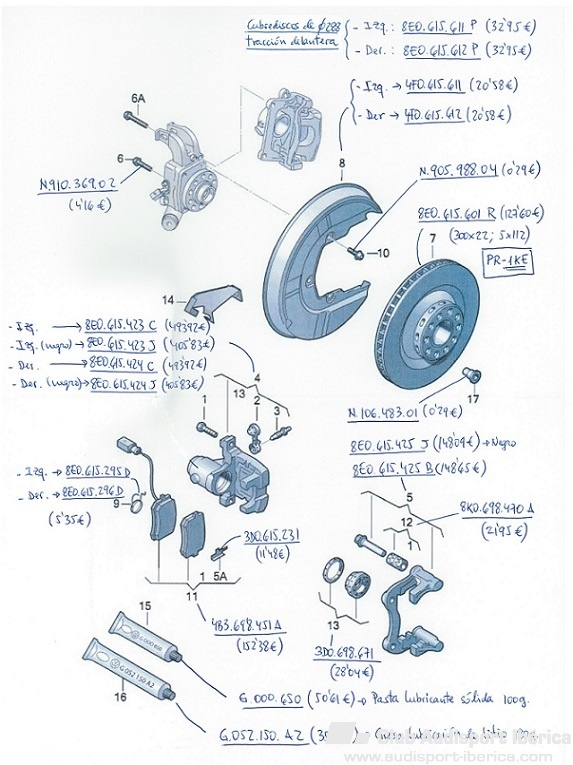 Cubrediscos de ø288 - Izq: 8E0.615.611 P (32'95€)
tracción delantera - Der.: 8E0.615.612 P (32'95€)
- Izq → 4F0.615.611 (20'58€)
- Der → 4F0.615.612 (20'58€)
6A
8
6
N.910.369.02
(4'16€)
N.905.988.04 (0'29€)
8E0.615.601 R (127'60€)
(300x22; 5x112)
7
PR-1KE
10
14
- Izq. → 8E0.615.423 C (493'92€)
- Izq. (negro) → 8E0.615.423 J (405'83€)
- Der. → 8E0.615.424 C (493'92€)
- Der. (negro) → 8E0.615.424 J (405'83€)
4
13
1 2 3
17
N.106.483.01 (0'29€)
8E0.615.425 J (148'09€) → Negro
8E0.615.425 B (148'65€)
5
8K0.698.470 A
(21'95€)
12
1
- Izq. → 8E0.615.295 D
- Der. → 8E0.615.296 D
9
(5'35€)
3D0.615.231
(11'48€)
1 5A
11
4B3.698.451 A
(152'38€)
13
3D0.698.671
(28'04€)
15
G 000 650
G 052 150 A2
16
G.000.650 (50'61€) → Pasta lubricante sólida 100g.
G.052.150.A2
Club Audisport Iberica
www.audisport-iberica.com